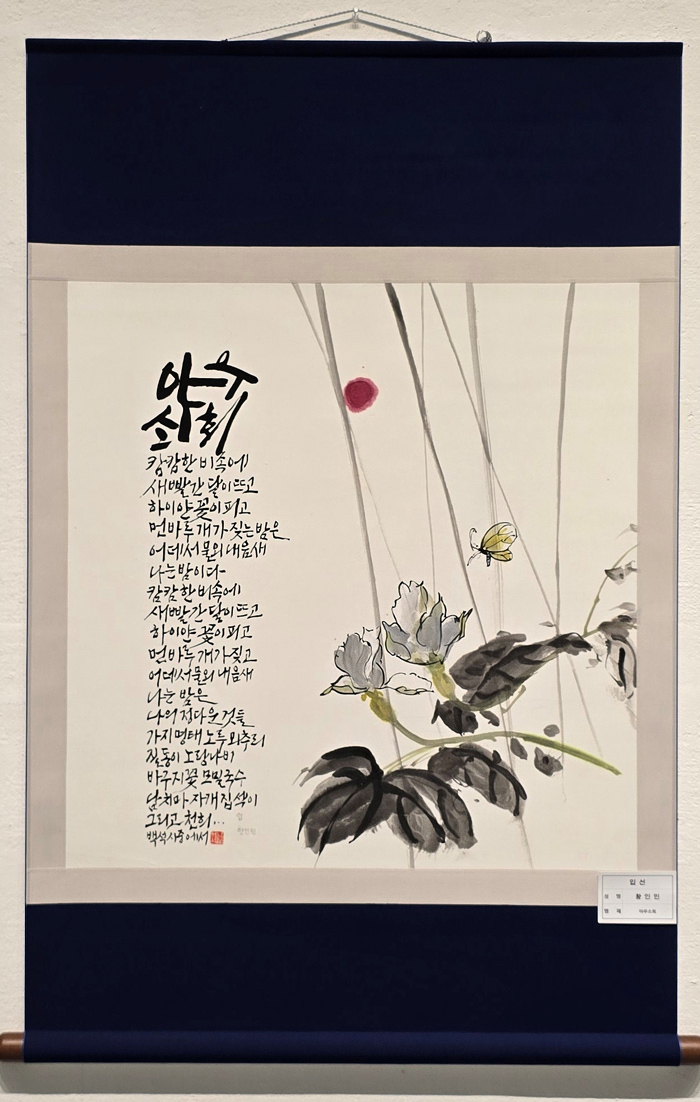 야우
소회
캄캄한 비속에
새빨간 달이 뜨고
하이얀 꽃이 피고
먼바루 개가 짖는 밤은
어데서 물외 내음새
나는 밤이다
캄캄한 비속에
새빨간 달이 뜨고
하이얀 꽃이 피고
먼바루 개가 짖고
어데서 물외 내음새
나는 밤은
나의 정다운 것들
가지 명태 노루 뫼추리
질동이 노랑나비
바구지꽃 모밀국수
남치마 자개짚섹이
그리고 천희...
백석 시 중에서
입선
성 명 황 인 민
명 제 야우소회